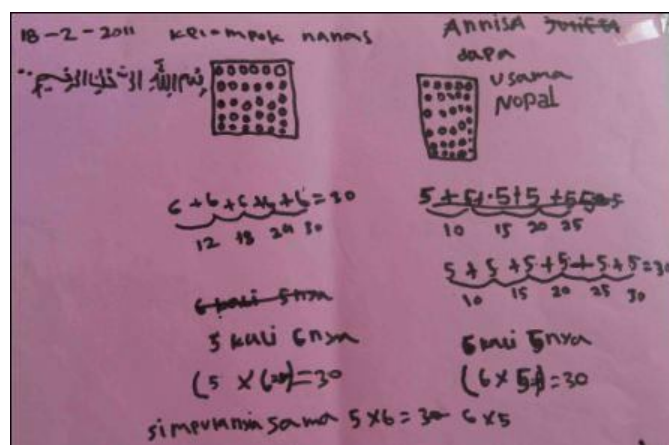 18-2-2011 kelompok nanas
Annisa
dapa
usama
Nopal
بسم الله الرحمن الرحيم
6+6+6+6+6=30
12 18 24 30
5+5+5+5+5
10 15 20 25
5+5+5+5+5+5=30
10 15 20 25 30
6 kali 5nya
5 kali 6nya
6 kali 5nya
(5 x 6)=30
(6 x 5)=30
simpulannya sama 5x6=30 6x5